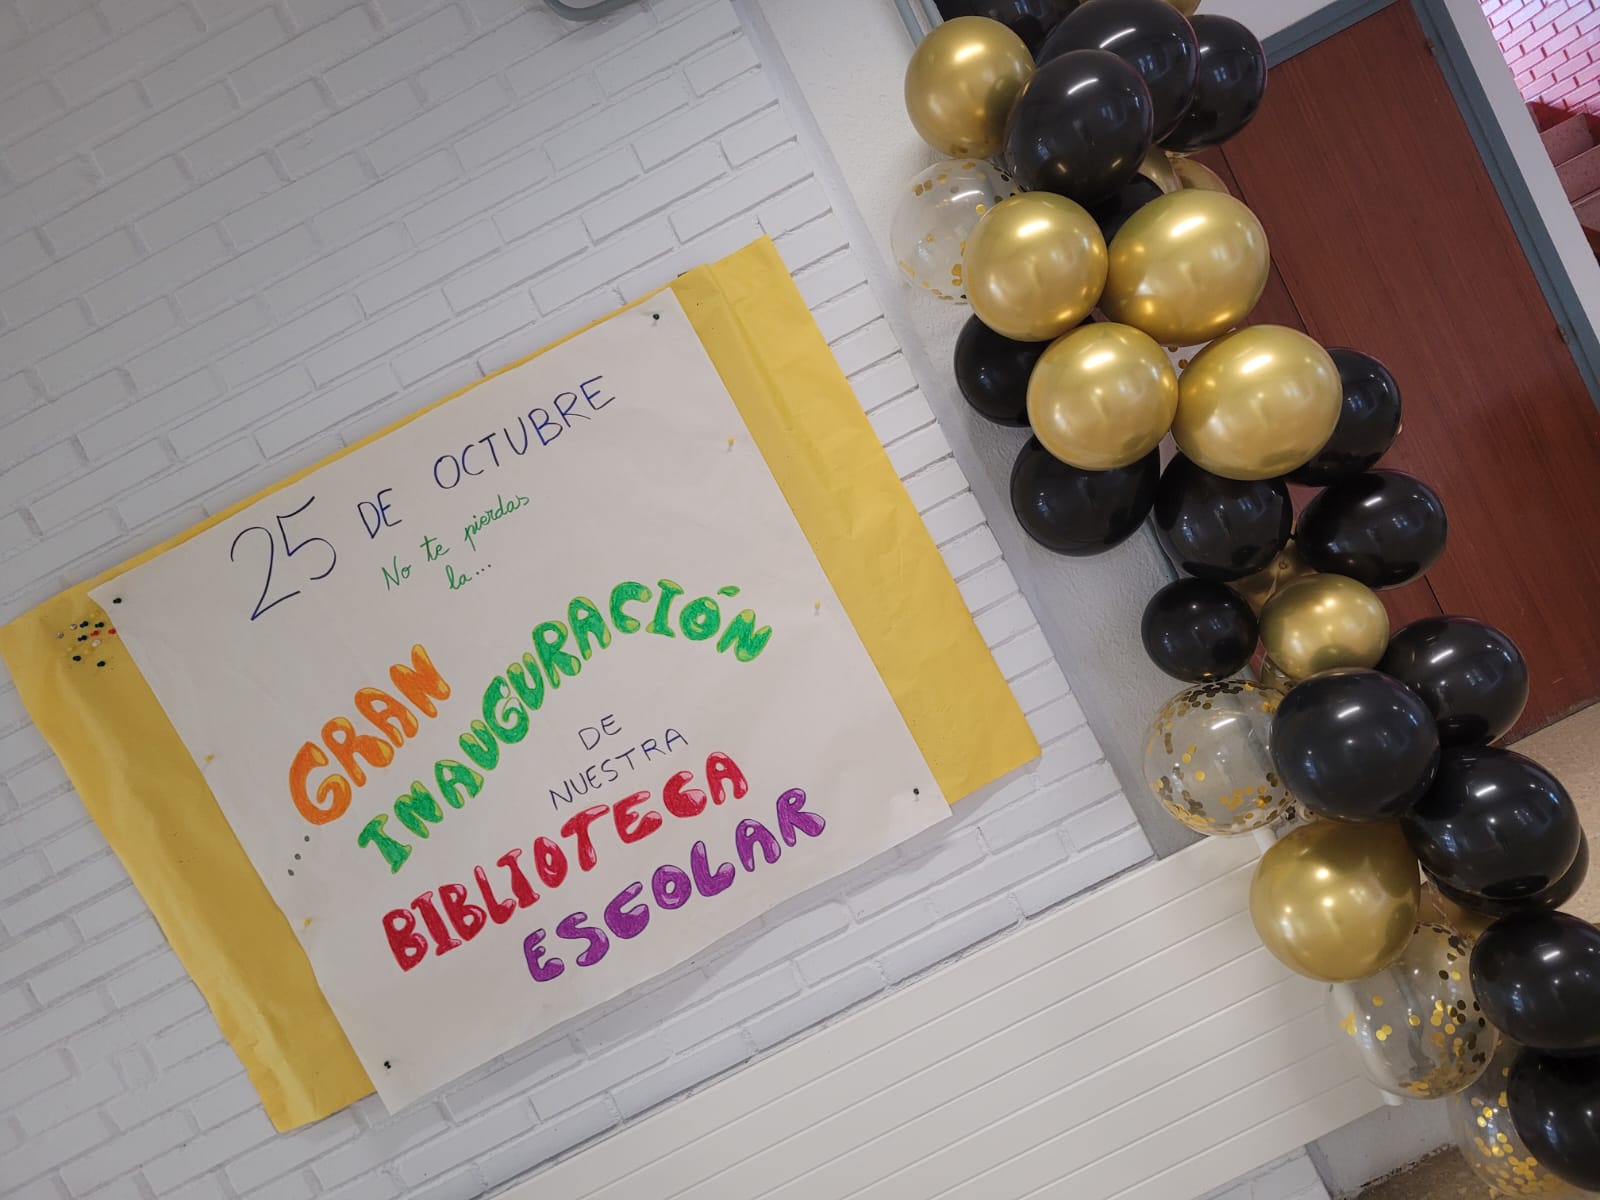 25 DE OCTUBRE
No te pierdas
la...
GRAN
INAUGURACIÓN
DE
NUESTRA
BIBLIOTECA
ESCOLAR